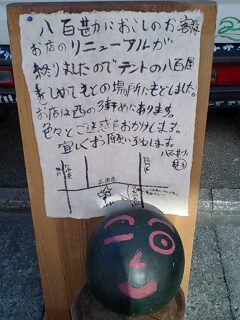 八百甚におこしのお客様
お店のリニューアルが
終りましたのでテントの八百屋
をしめてもとの場所にもどしました。
お店は西の3軒めにあります。
色々とご迷惑をおかけします。
宜しくお願い致します。
八百甚